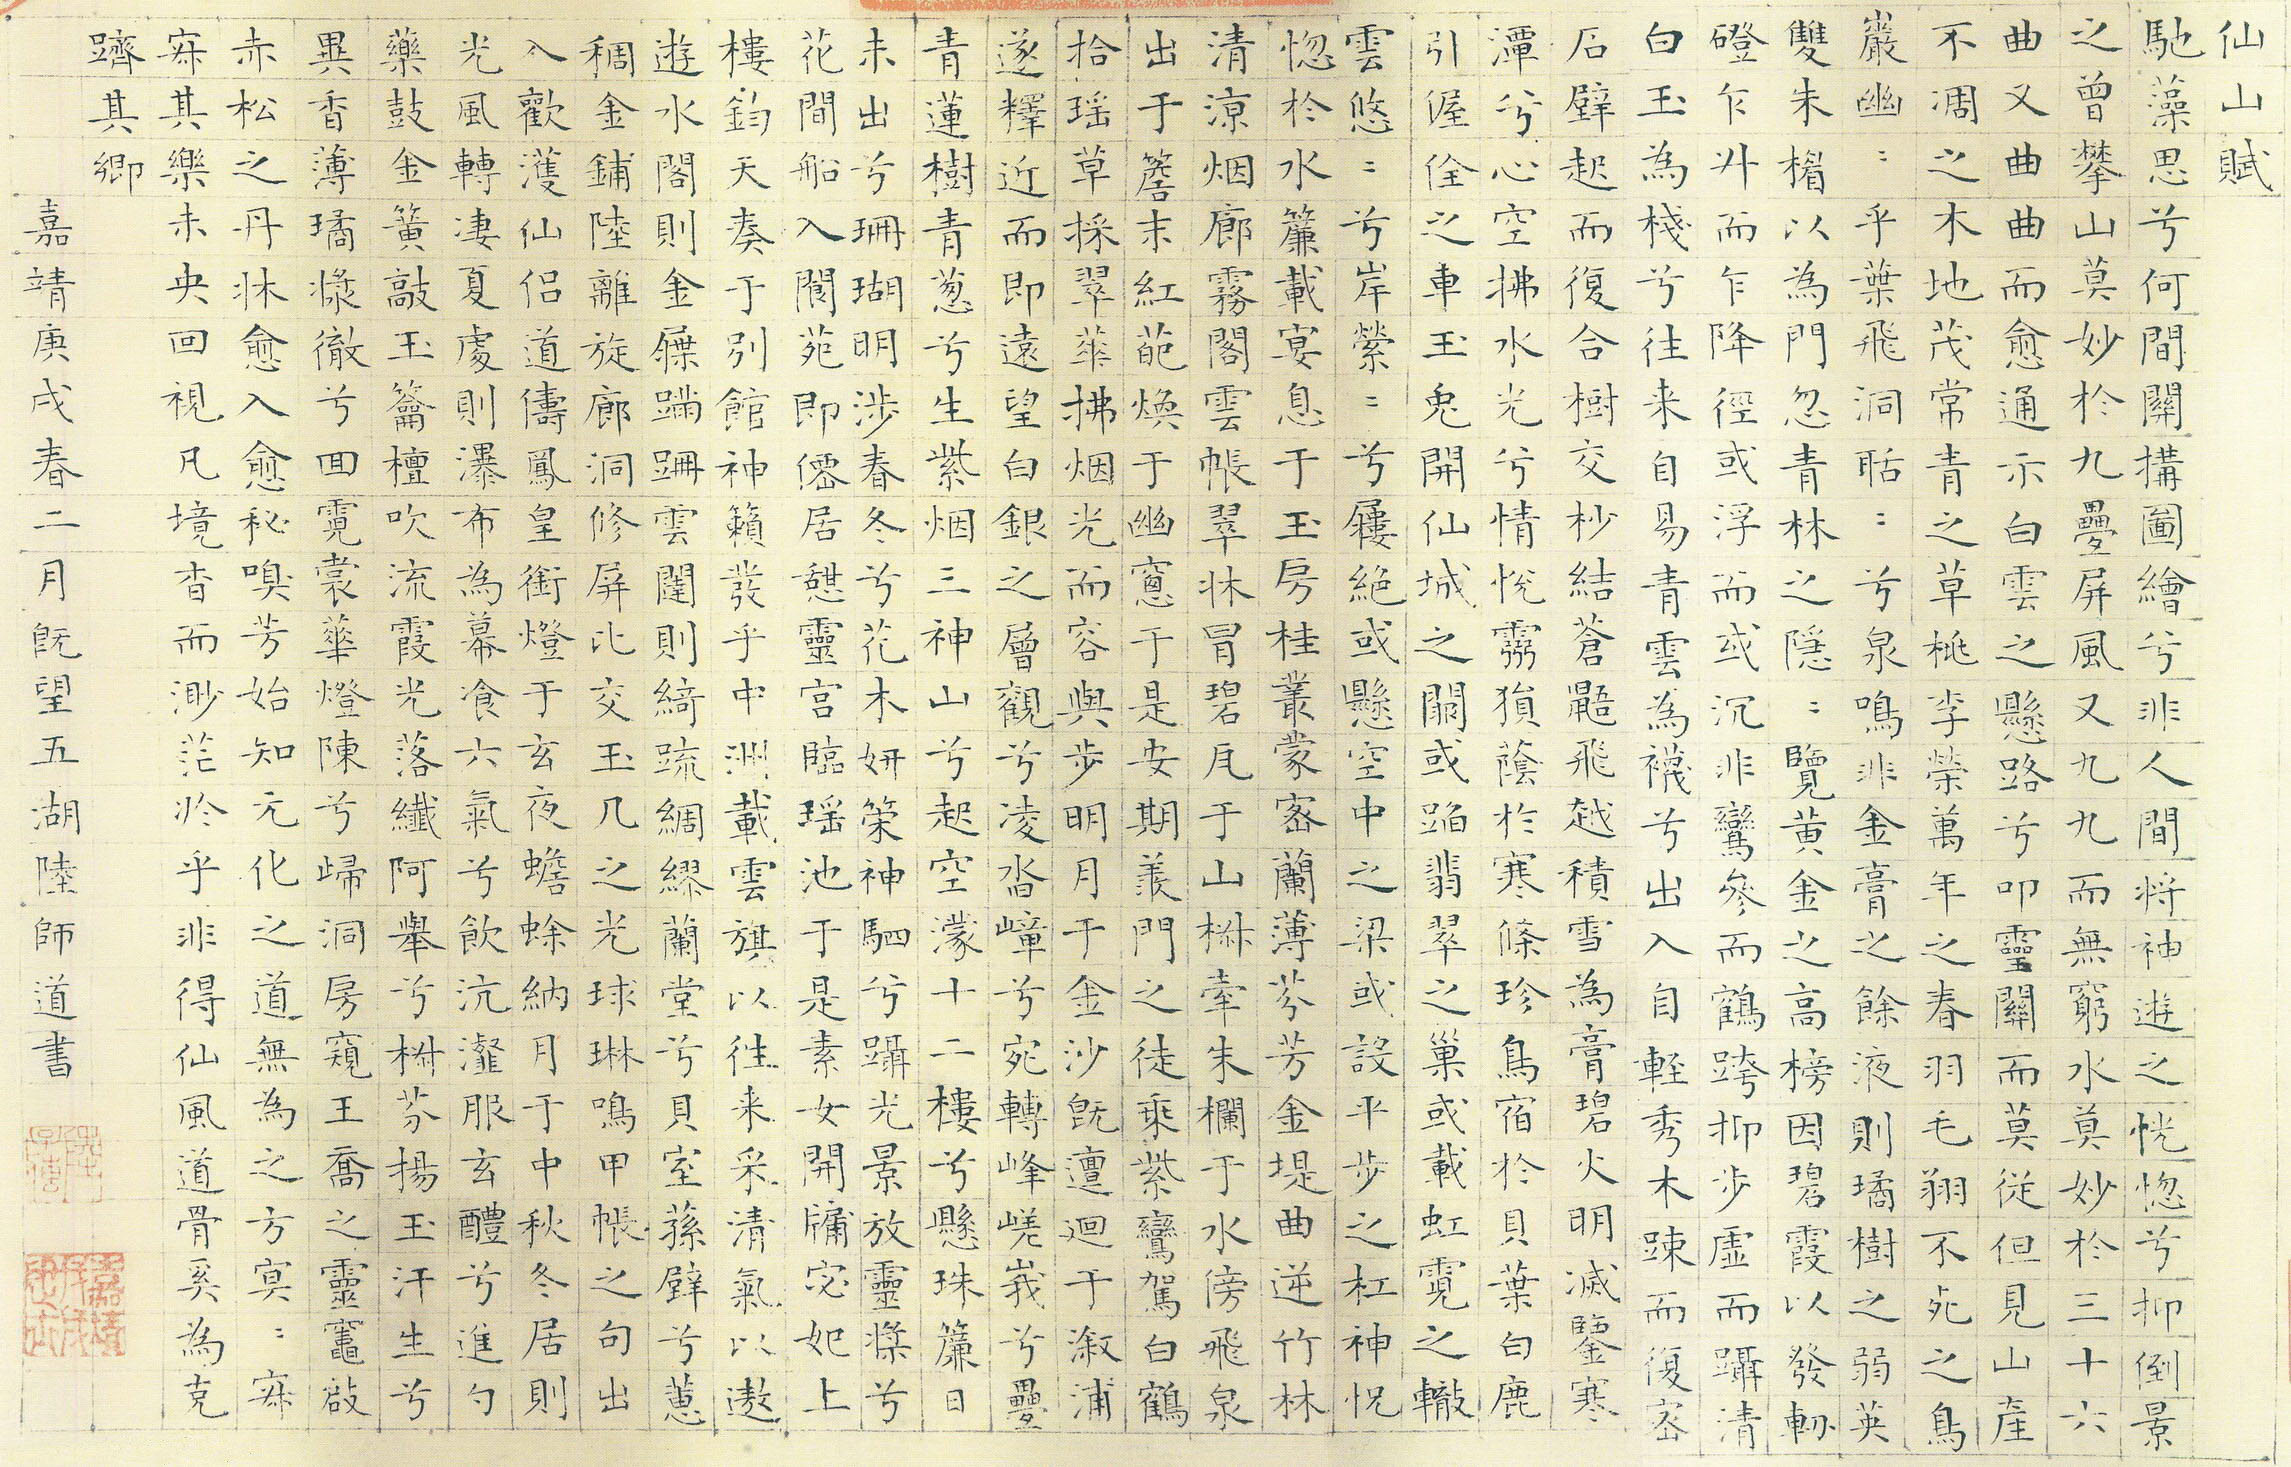 仙山賦
馳藻思兮何間關搆圖繪兮非人間將神遊之恍惚兮抑倒景
之曾攀山莫妙於九疊屏風又九九而無窮水莫妙於三十六
曲又曲曲而愈通示白雲之懸路兮叩靈關而莫從但見山產
不凋之木地茂常青之草桃李榮萬年之春羽毛翔不死之鳥
巖幽〻乎葉飛洞聒〻兮泉鳴非金膏之餘液則璚樹之弱英
雙朱楣以為門忽青林之隱〻覽黃金之高榜因碧霞以發軔
磴乍升而乍降徑或浮而或沉非鸞參而鶴跨抑步虛而躡清
白玉為棧兮往来自易青雲為襪兮出入自輕秀木踈而復密
石壁起而復合樹交杪結蒼鼯飛越積雪為膏碧火明滅鑒寒
潭兮心空拂水光兮情悅霧猿蔭於寒條珍鳥宿於貝葉白鹿
引偓佺之車玉兔開仙城之關或蹈翡翠之巢或載虹霓之轍
雲悠〻兮岸縈〻兮屨絕或懸空中之梁或設平步之杠神怳
惚於水簾載宴息于玉房桂叢蒙密蘭薄芬芳金堤曲逆竹林
清涼烟廊霧閣雲帳翠牀冒碧瓦于山樹牽朱欄于水傍飛泉
出于簷末紅葩煥于幽窻于是安期羨門之徒乘紫鸞駕白鶴
拾瑶草採翠華拂烟光而容與步明月于金沙既邅迴于溆浦
遂釋近而即遠望白銀之層觀兮凌沓嶂兮宛轉峰嵯峩兮疊
青蓮樹青葱兮生紫烟三神山兮起空濛十二樓兮懸珠簾日
未出兮珊瑚明涉春冬兮花木妍策神駟兮躡光景放靈槳兮
花間船入閬苑即僊居憩靈宮臨瑶池于是素女開牖宓妃上
樓鈞天奏于別館神籟發乎中洲載雲旗以往来采清氣以遨
遊水閣則金屧蹣跚雲闈則綺疏綢繆蘭堂兮貝室蓀壁兮蕙
稠金鋪陸離旋廊洞修屏比交玉几之光球琳鳴甲帳之句出
入歡濩仙侶道儔鳳皇銜燈于玄夜蟾蜍納月于中秋冬居則
光風轉凄夏處則瀑布為幕飡六氣兮飲沆瀣服玄醴兮進勺
藥鼓金簧敲玉籥檀吹流霞光落纖阿舉兮樹芬揚玉汗生兮
異香薄璚漿徹兮回霓裳華燈陳兮歸洞房窺王喬之靈竈啟
赤松之丹牀愈入愈秘嗅芳始知元化之道無為之方冥〻寂
寂其樂未央回視凡境杳而渺茫於乎非得仙風道骨奚為克
躋其鄉
嘉靖庚戌春二月既望五湖陸師道書